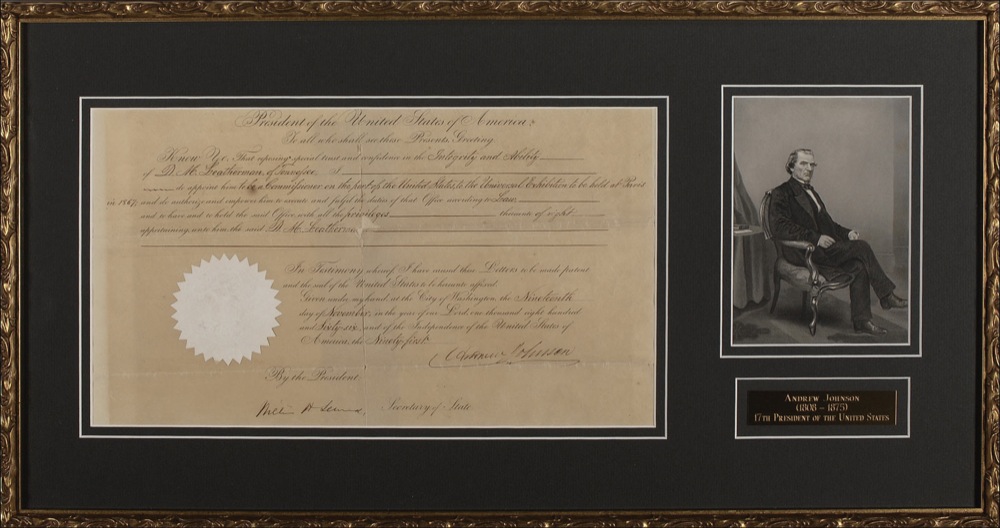 President of the United States of America,
To all who shall see these Presents, Greeting
Know Ye, That reposing special trust and confidence in the Integrity and Ability
of D. M. Leatherman, of Tennessee, I
do appoint him to be a Commissioner on the part of the United States, to the Universal Exhibition to be held at Paris
in 1867, and do authorize and empower him to execute and fulfil the duties of that Office according to Law
and to have and to hold the said Office, with all the privileges thereunto of right
appertaining, unto him, the said D. M. Leatherman
In Testimony whereof, I have caused these Letters to be made patent
and the seal of the United States to be hereunto affixed.
Given under my hand, at the City of Washington, the Nineteenth
day of November, in the year of our Lord, one thousand eight hundred
and Sixty-six, and of the Independence of the United States of
America, the Ninety-first.
Andrew Johnson
By the President
William H Seward, Secretary of State
ANDREW JOHNSON
(1808 – 1875)
17TH PRESIDENT OF THE UNITED STATES